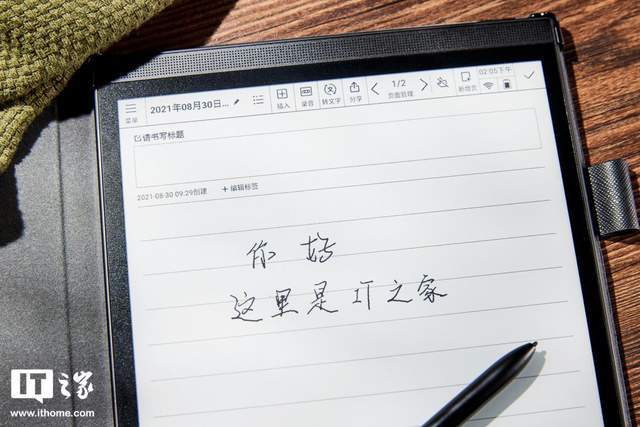 菜单 2021年08月30日... 插入 录音 转文字 分享 1/2 页面管理 新增页 02:05下午
请书写标题
2021-08-30 09:29创建 + 编辑标签
你好
这里是IT之家
IT之家
www.ithome.com